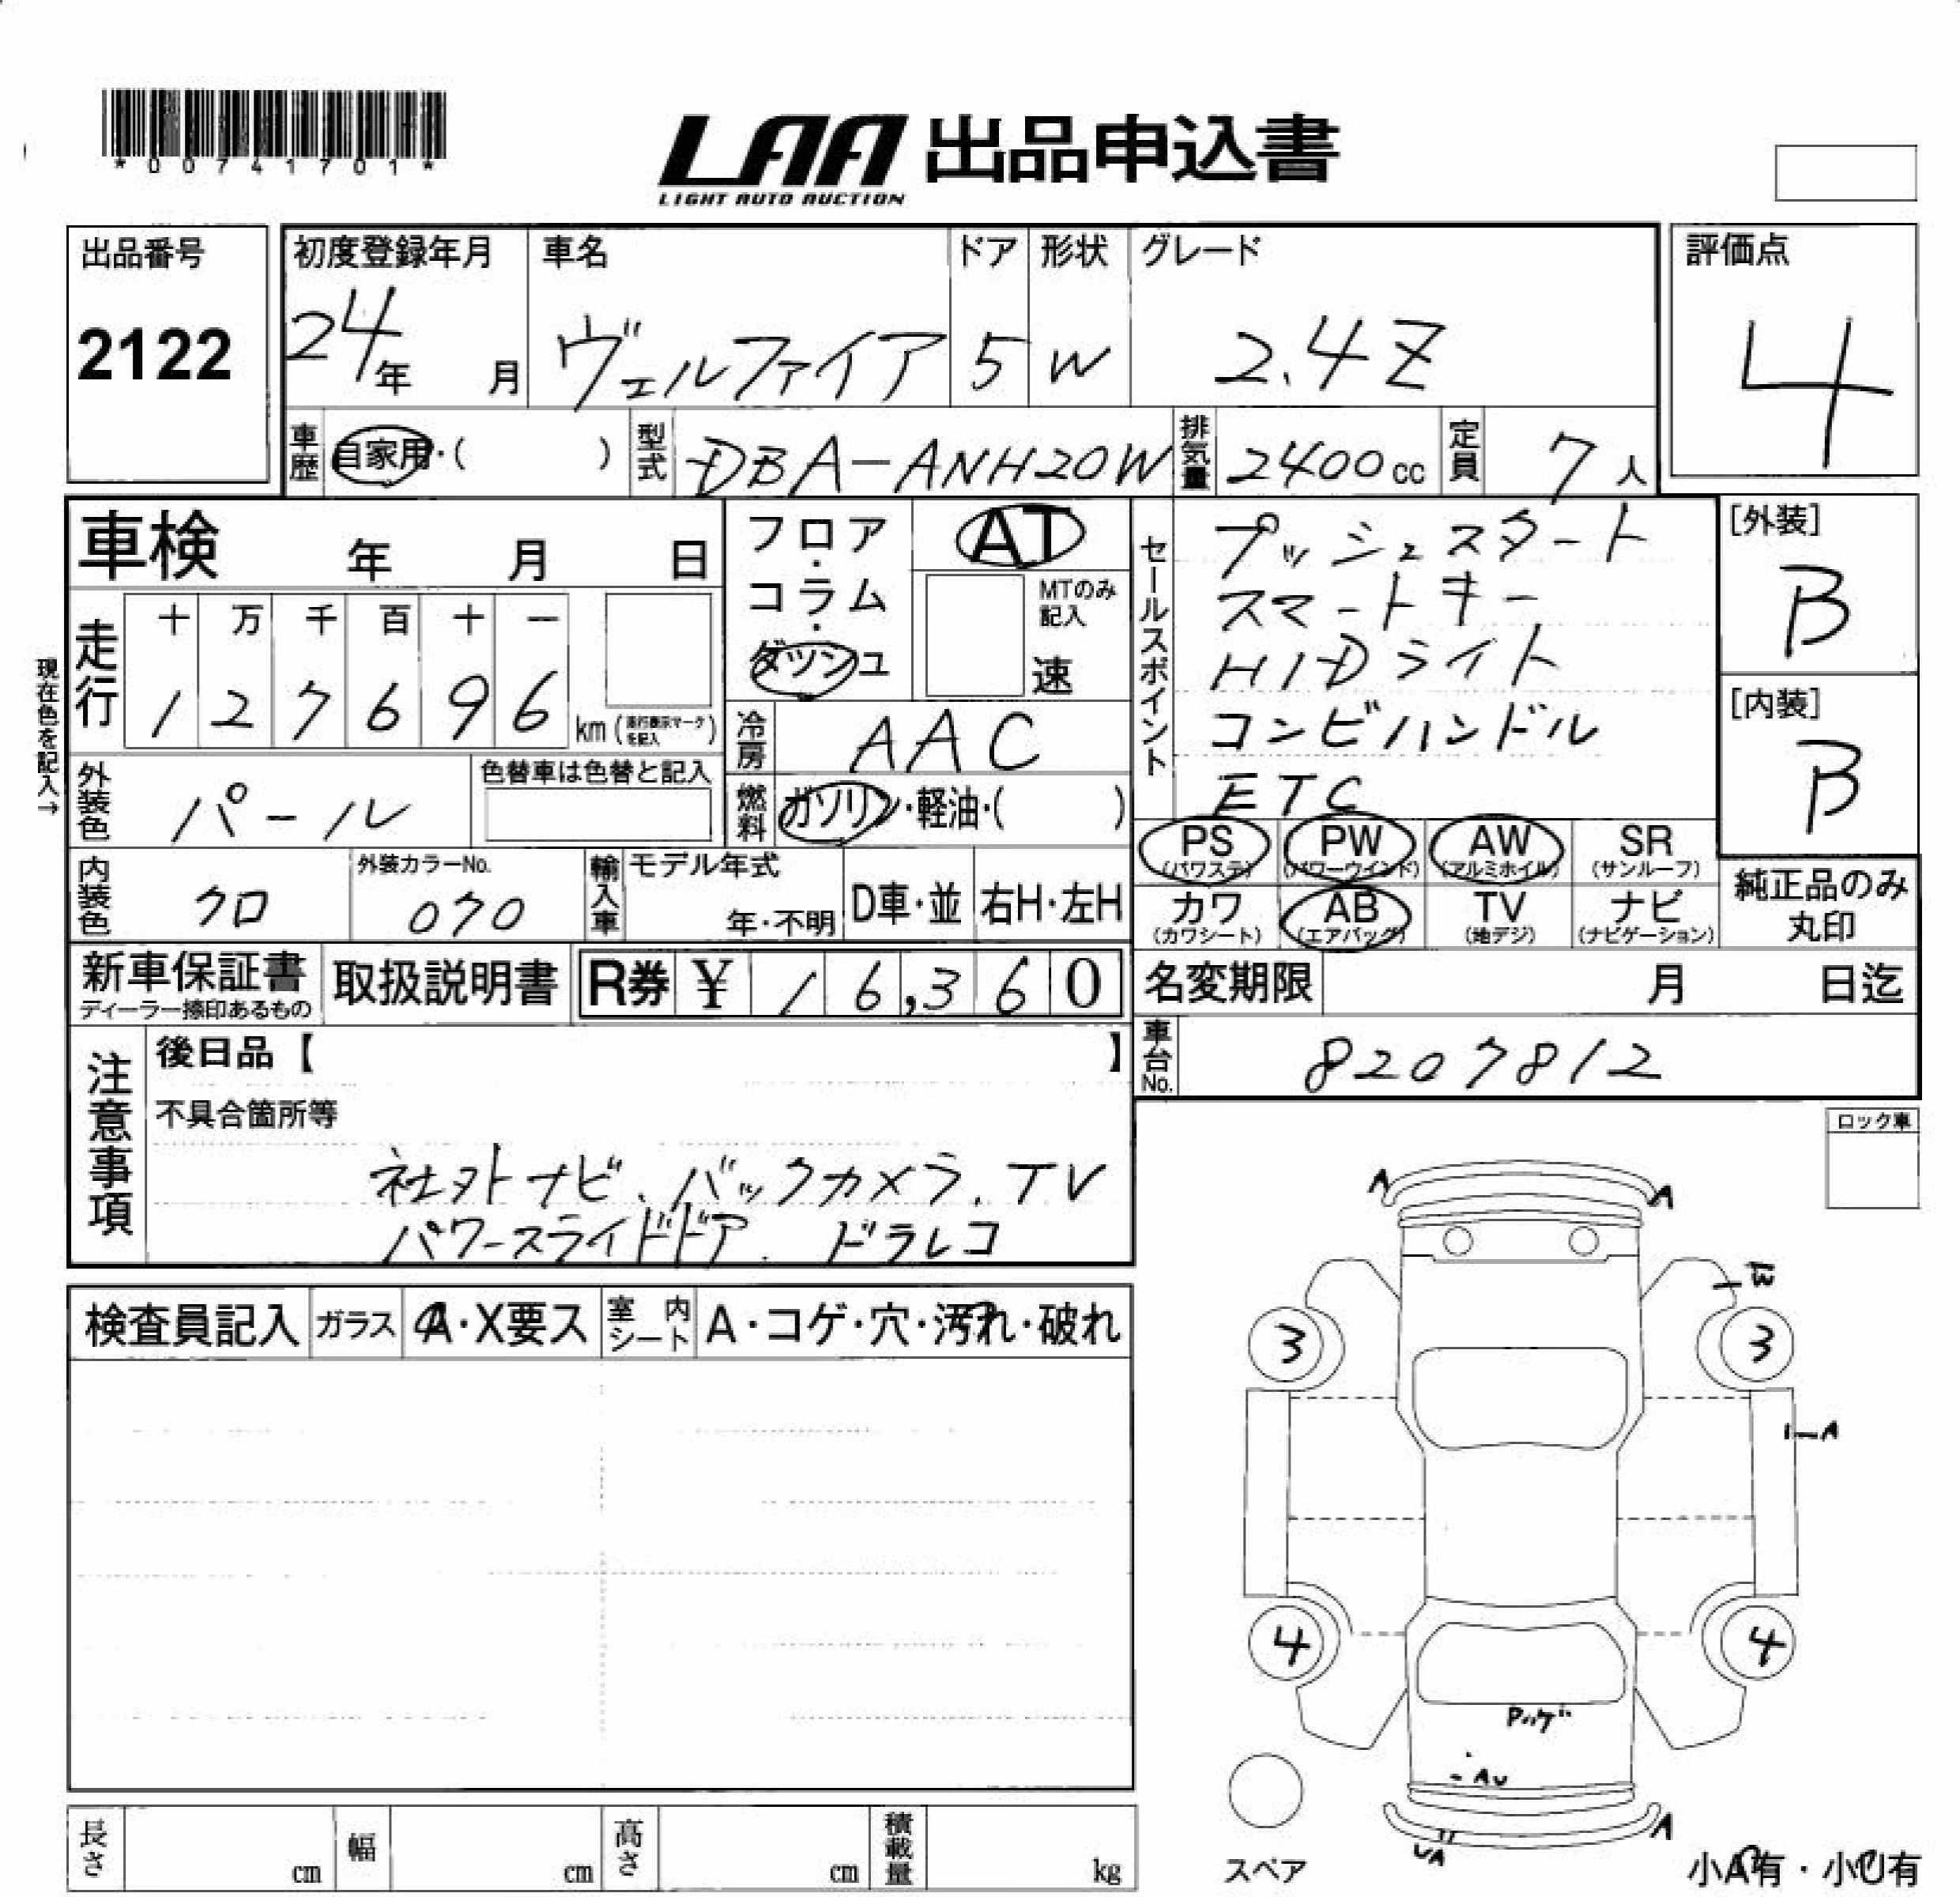 *00741701*
LAA 出品申込書
LIGHT AUTO AUCTION
出品番号
2122
初度登録年月
24年 月
車名
ヴェルファイア
ドア
5
形状
W
グレード
2.4Z
評価点
4
車歴 自家用・( )
型式 DBA-ANH20W
排気量 2400cc
定員 7人
車検 年 月 日
現在色を記入→
走行
十 万 千 百 十 一
1 2 7 6 9 6 km (走行表示マークを記入)
フロア・コラム・ダッシュ
AT
MTのみ記入
速
冷房 AAC
燃料 ガソリン・軽油・( )
セールスポイント
プッシュスタート
スマートキー
HIDライト
コンビハンドル
ETC
[外装]
B
[内装]
B
外装色 パール
色替車は色替と記入
内装色 クロ
外装カラーNo.
070
輸入車 モデル年式
年・不明
D車・並
右H・左H
PS (パワステ)
PW (パワーウインド)
AW (アルミホイル)
SR (サンルーフ)
カワ (カワシート)
AB (エアバッグ)
TV (地デジ)
ナビ (ナビゲーション)
純正品のみ
丸印
新車保証書
ディーラー捺印あるもの
取扱説明書
R券 ¥ 16,360
名変期限 月 日迄
車台No. 8207812
注意事項
後日品【 】
不具合箇所等
社外ナビ、バックカメラ、TV
パワースライドドア、ドラレコ
ロック車
検査員記入
ガラス A・X要ス
室内シート A・コゲ・穴・汚れ・破れ
A
A
3
3
A
4
4
Pハゲ
AU
UA
A
スペア
長さ cm
幅 cm
高さ cm
積載量 kg
小A有・小U有